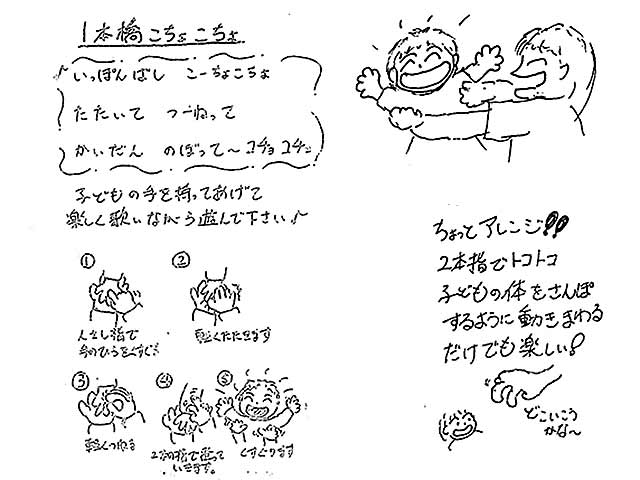 1本橋こちょこちょ
いっぽんばし こーちょこちょ
たたいて つーねって
かいだん のぼって〜コチョコチョ
子どもの手を持ってあげて
楽しく歌いながら遊んで下さい♪
①
②
人さし指で
手のひらをくすぐる
軽くたたきます
③
④
⑤
軽くつねる
2本の指で登って
いきます。
くすぐります
ちょっとアレンジ!!
2本指でトコトコ
子どもの体をさんぽ
するように動きまわる
だけでも楽しい!
どこいこう
かな〜